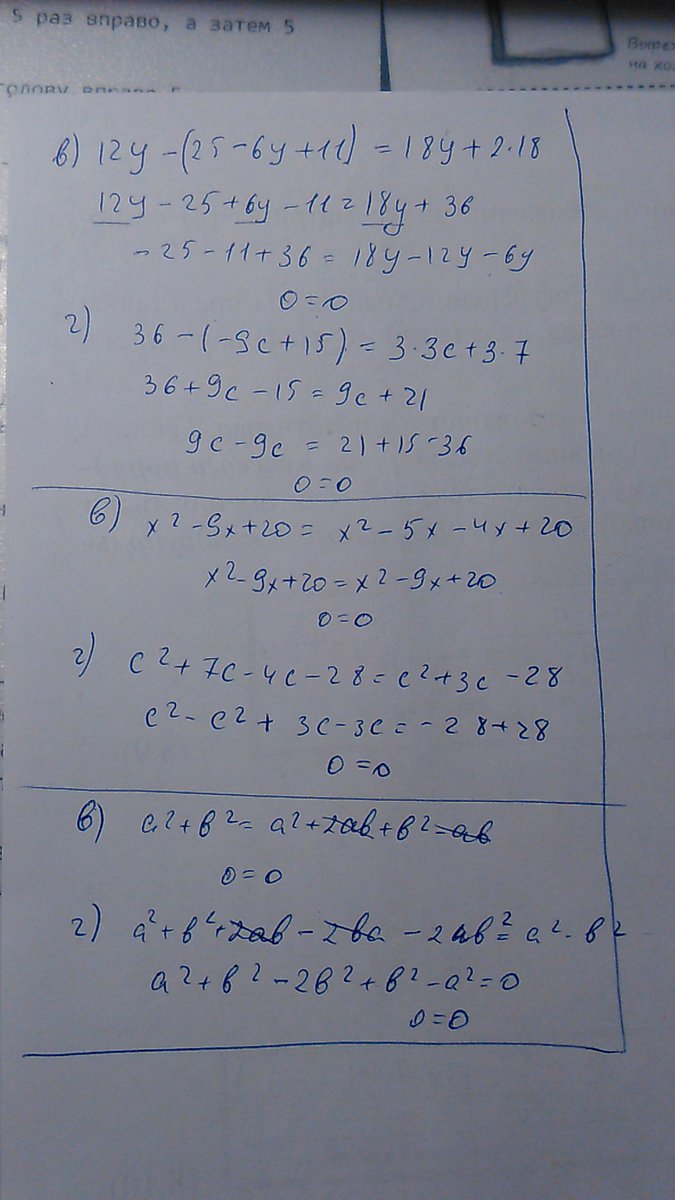 5 раз вправо, а затем 5
Вырез
на хо
голову вправо
в) 12y - (25 - 6y + 11) = 18y + 2·18
12y - 25 + 6y - 11 = 18y + 36
- 25 - 11 + 36 = 18y - 12y - 6y
0 = 0
г) 36 - (-9c + 15) = 3·3c + 3·7
36 + 9c - 15 = 9c + 21
9c - 9c = 21 + 15 - 36
0 = 0
в) x² - 9x + 20 = x² - 5x - 4x + 20
x² - 9x + 20 = x² - 9x + 20
0 = 0
г) c² + 7c - 4c - 28 = c² + 3c - 28
c² - c² + 3c - 3c = - 28 + 28
0 = 0
в) a² + b² = a² + 2ab + b² = ab
0 = 0
г) a² + b² + 2ab - 2ba - 2ab² = a² - b²
a² + b² - 2b² + b² - a² = 0
0 = 0